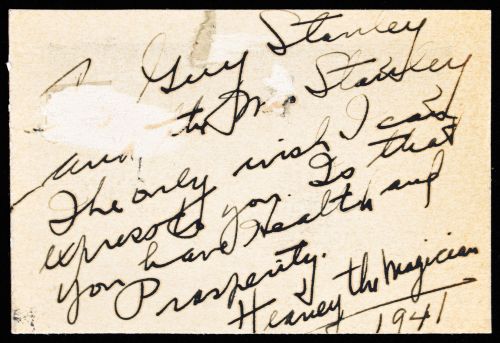 Guy Stanley
and, to Mrs Stanley
The only wish I can
express to you. Is that
you have Health and
Prosperity.
Heaney the Magician
1941